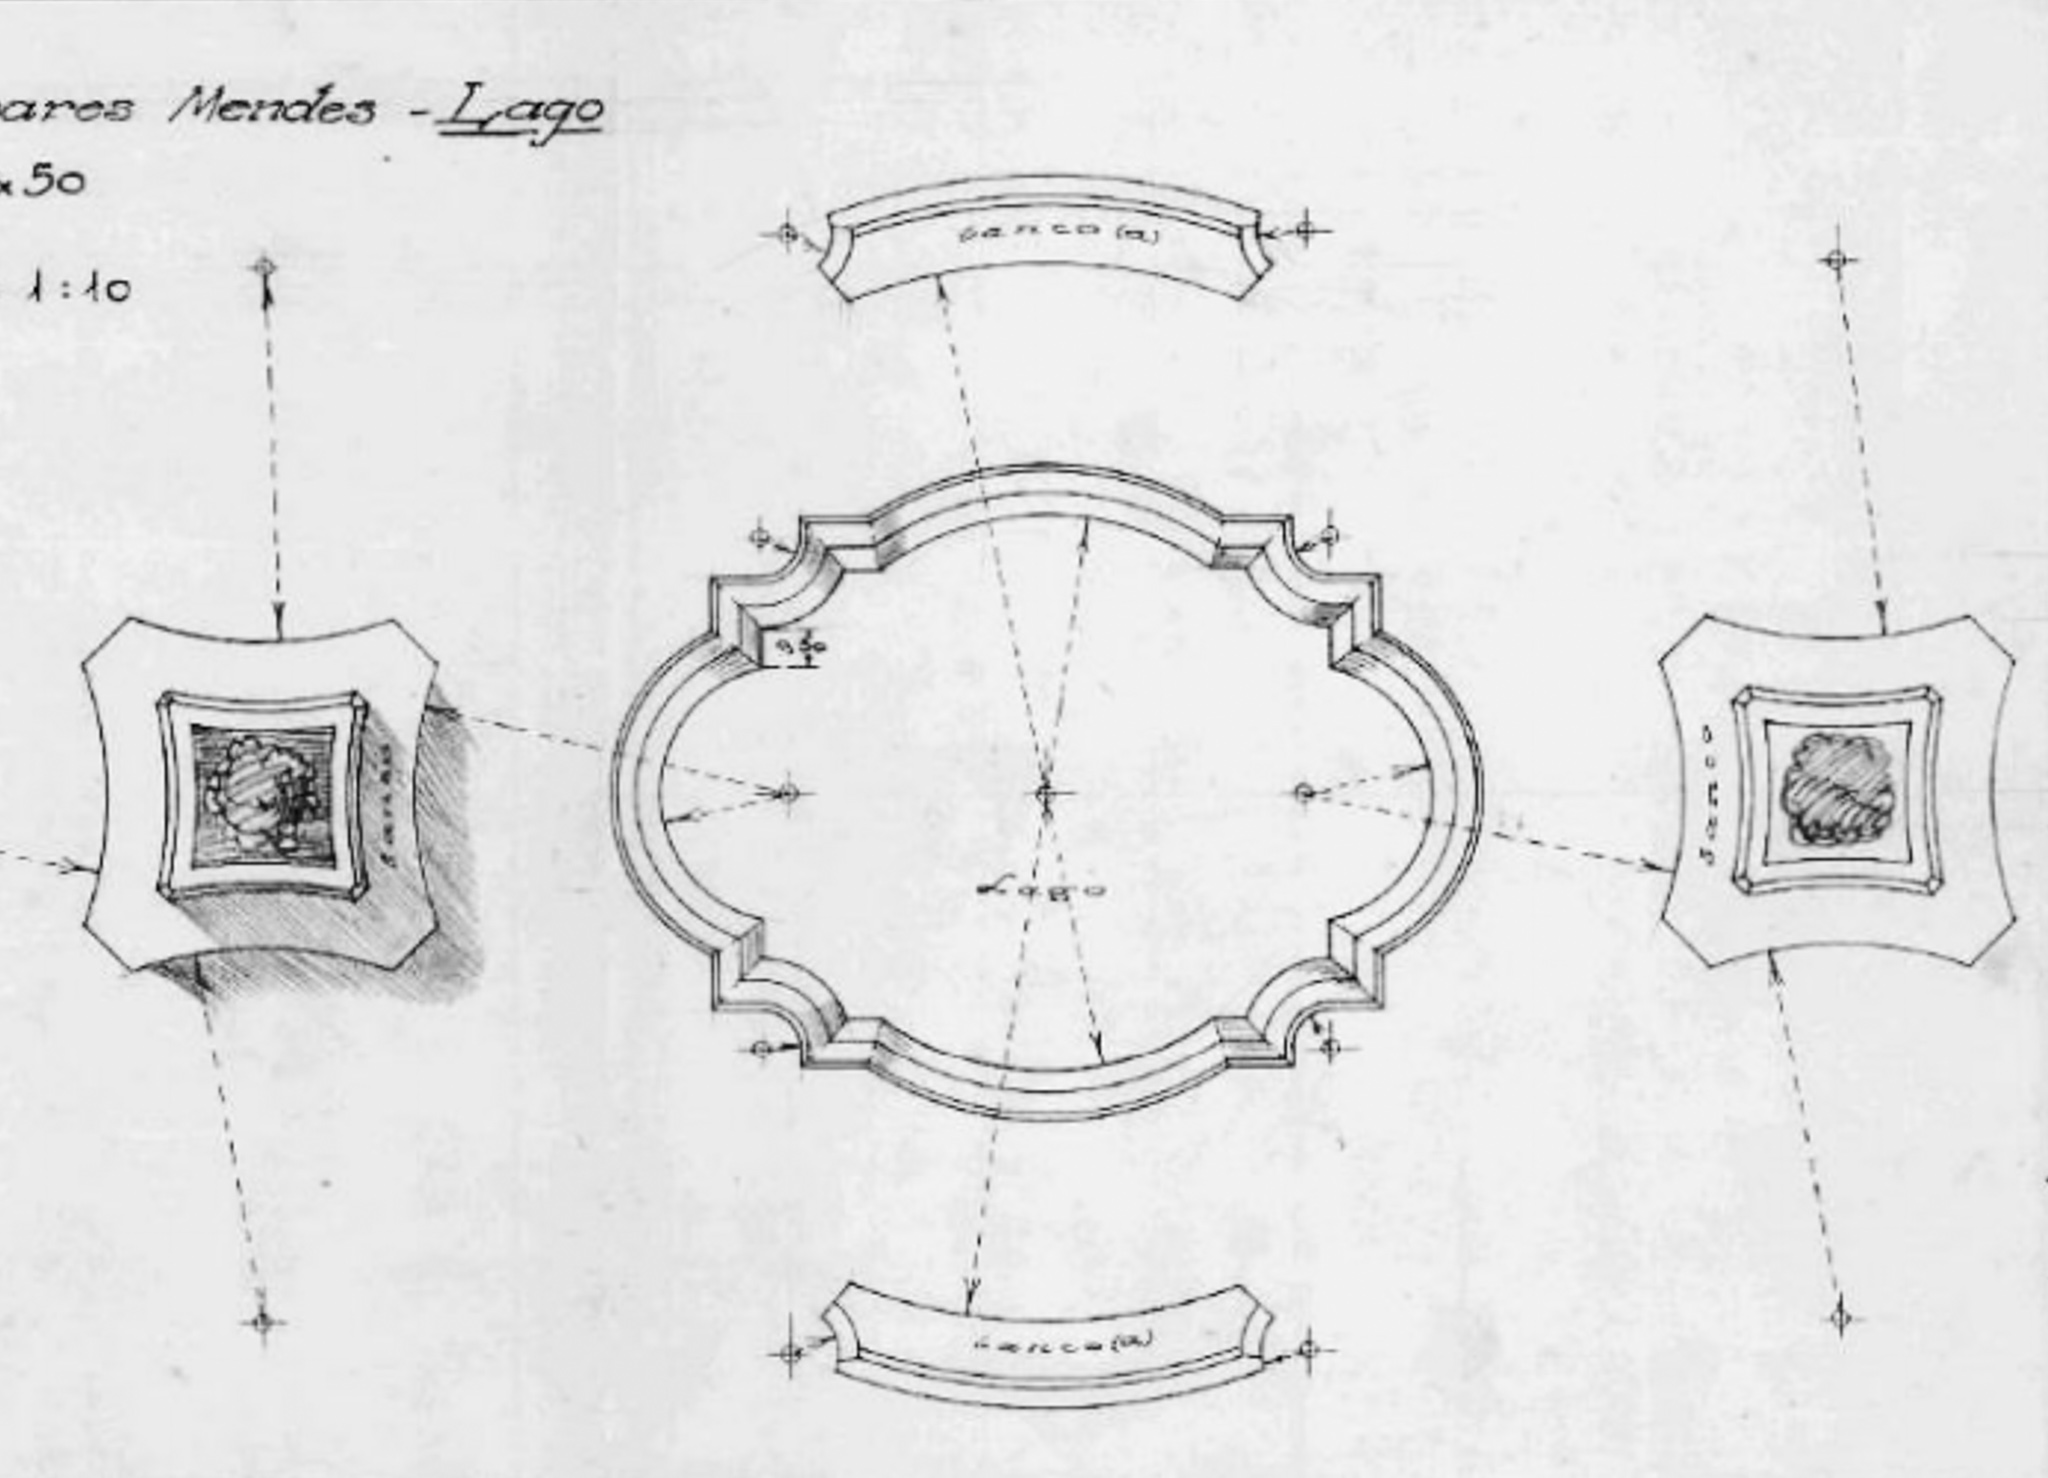 ares Mendes - Lago
x 50
1:10
banco (a)
0,50
banco
banco
Lago
banco (a)